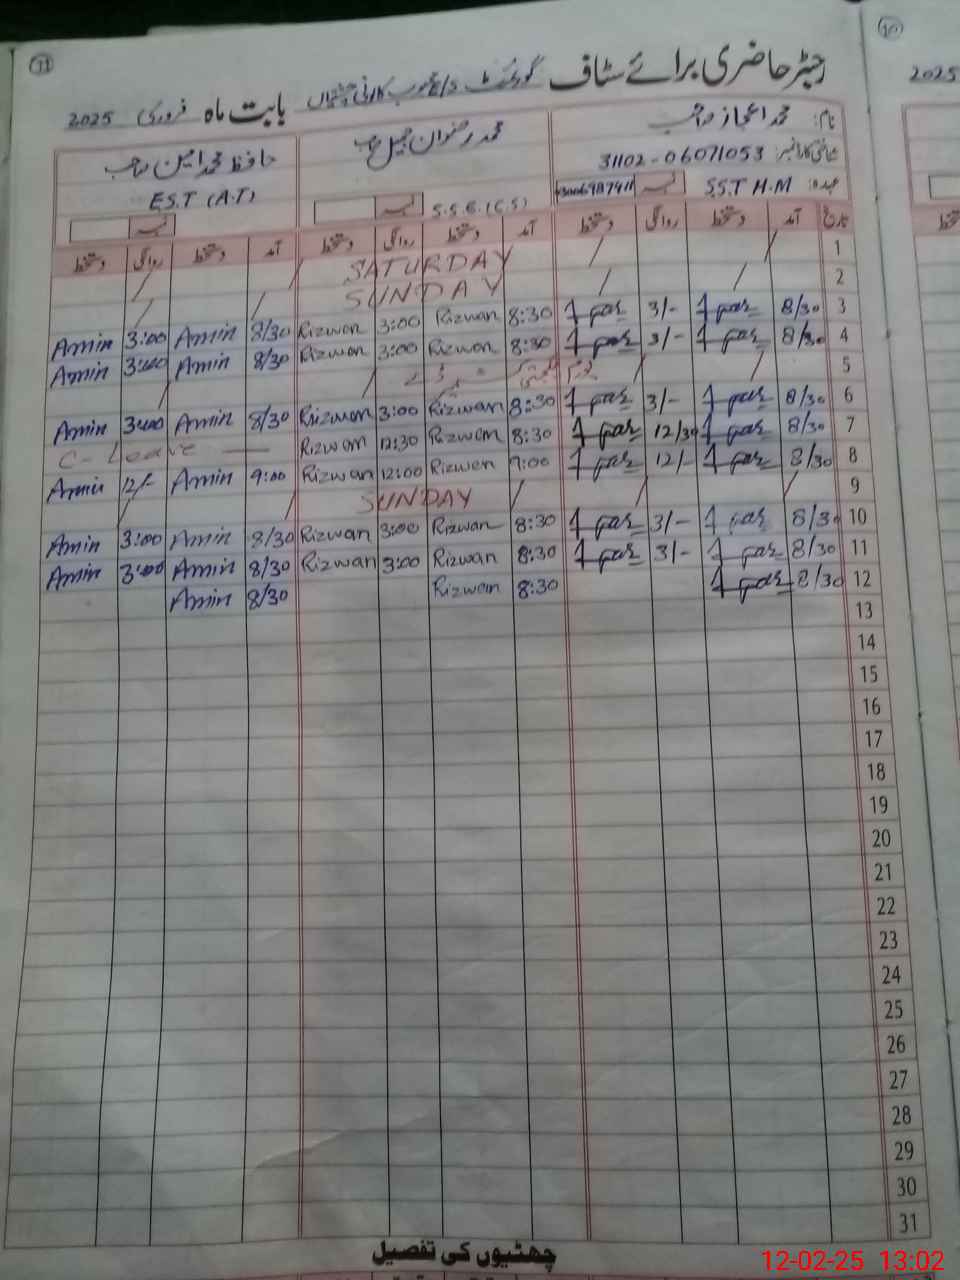 11
10
رجسٹر حاضری برائے سٹاف گورنمنٹ
بابت ماہ فروری 2025
2025
نام: محمد اعجاز صاحب
محمد رضوان جمیل صاحب
حافظ محمد امین صاحب
شناختی کارڈ نمبر: 31102-06071053
عہدہ: S.S.T H.M نمبر
S.S.E (C.S) نمبر
E.S.T (A.T) نمبر
تاریخ آمد دستخط روانگی دستخط آمد دستخط روانگی دستخط آمد دستخط روانگی دستخط
1 SATURDAY
2 SUNDAY
3 8/30 3/- 8:30 Rizwan 3:00 Rizwan 8/30 Amin 3:00 Amin
4 8/30 3/- 8:30 Rizwan 3:00 Rizwan 8/30 Amin 3:00 Amin
5 یوم کشمیر
6 8/30 3/- 8:30 Rizwan 3:00 Rizwan 8/30 Amin 3:00 Amin
7 8/30 12/30 8:30 Rizwan 12:30 Rizwan C- Leave
8 8/30 12/- 9:00 Rizwan 12:00 Rizwan 9:00 Amin 12/- Amin
9 SUNDAY
10 8/30 3/- 8:30 Rizwan 3:00 Rizwan 8/30 Amin 3:00 Amin
11 8/30 3/- 8:30 Rizwan 3:00 Rizwan 8/30 Amin 3:00 Amin
12 8/30 8:30 Rizwan 8/30 Amin
13
14
15
16
17
18
19
20
21
22
23
24
25
26
27
28
29
30
31
چھٹیوں کی تفصیل
12-02-25 13:02